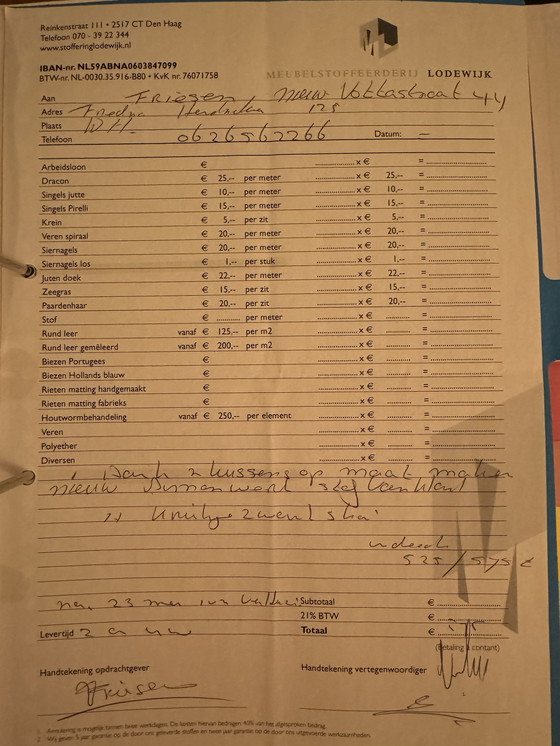 Reinkenstraat 111 • 2517 CT Den Haag
Telefoon 070 - 39 22 344
www.stofferinglodewijk.nl
IBAN-nr. NL59ABNA0603847099
BTW-nr. NL-0030.35.916-B80 • KvK nr. 76071758
MEUBELSTOFFEERDERIJ LODEWIJK
Aan Friesen, nieuw 44
Adres 125
Plaats
Telefoon 0626562266 Datum: —
Arbeidsloon € x € =
Dracon € 25,-- per meter x € 25,-- =
Singels jutte € 10,-- per meter x € 10,-- =
Singels Pirelli € 15,-- per meter x € 15,-- =
Krein € 5,-- per zit x € 5,-- =
Veren spiraal € 20,-- per meter x € 20,-- =
Siernagels € 20,-- per meter x € 20,-- =
Siernagels los € 1,-- per stuk x € 1,-- =
Juten doek € 22,-- per meter x € 22,-- =
Zeegras € 15,-- per zit x € 15,-- =
Paardenhaar € 20,-- per zit x € 20,-- =
Stof € per meter x € =
Rund leer vanaf € 125,-- per m2 x € =
Rund leer gemêleerd vanaf € 200,-- per m2 x € =
Biezen Portugees € x € =
Biezen Hollands blauw € x € =
Rieten matting handgemaakt € x € =
Rieten matting fabrieks € x € =
Houtwormbehandeling vanaf € 250,-- per element x € =
Veren x € =
Polyether x € =
Diversen x € =
2 kussens op maat maken
nieuw binnenwerk
525 / 575 €
23 mei Subtotaal €
21% BTW €
Levertijd 2 Totaal €
(Betaling á contant)
Handtekening opdrachtgever Handtekening vertegenwoordiger
Friesen
1 Annulering is mogelijk binnen twee werkdagen. De kosten hiervan bedragen 40% van het afgesproken bedrag.
2 Wij geven 5 jaar garantie op de door ons geleverde stoffen en twee jaar garantie op de door ons uitgevoerde werkzaamheden.